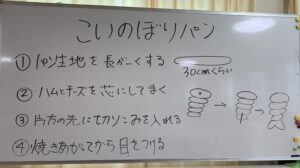 こいのぼりパン
① パン生地を長〜くする
30cmくらい
② ハムとチーズを芯にしてまく
③ 片方の先に切りこみを入れる
④ 焼きあがってから目をつける